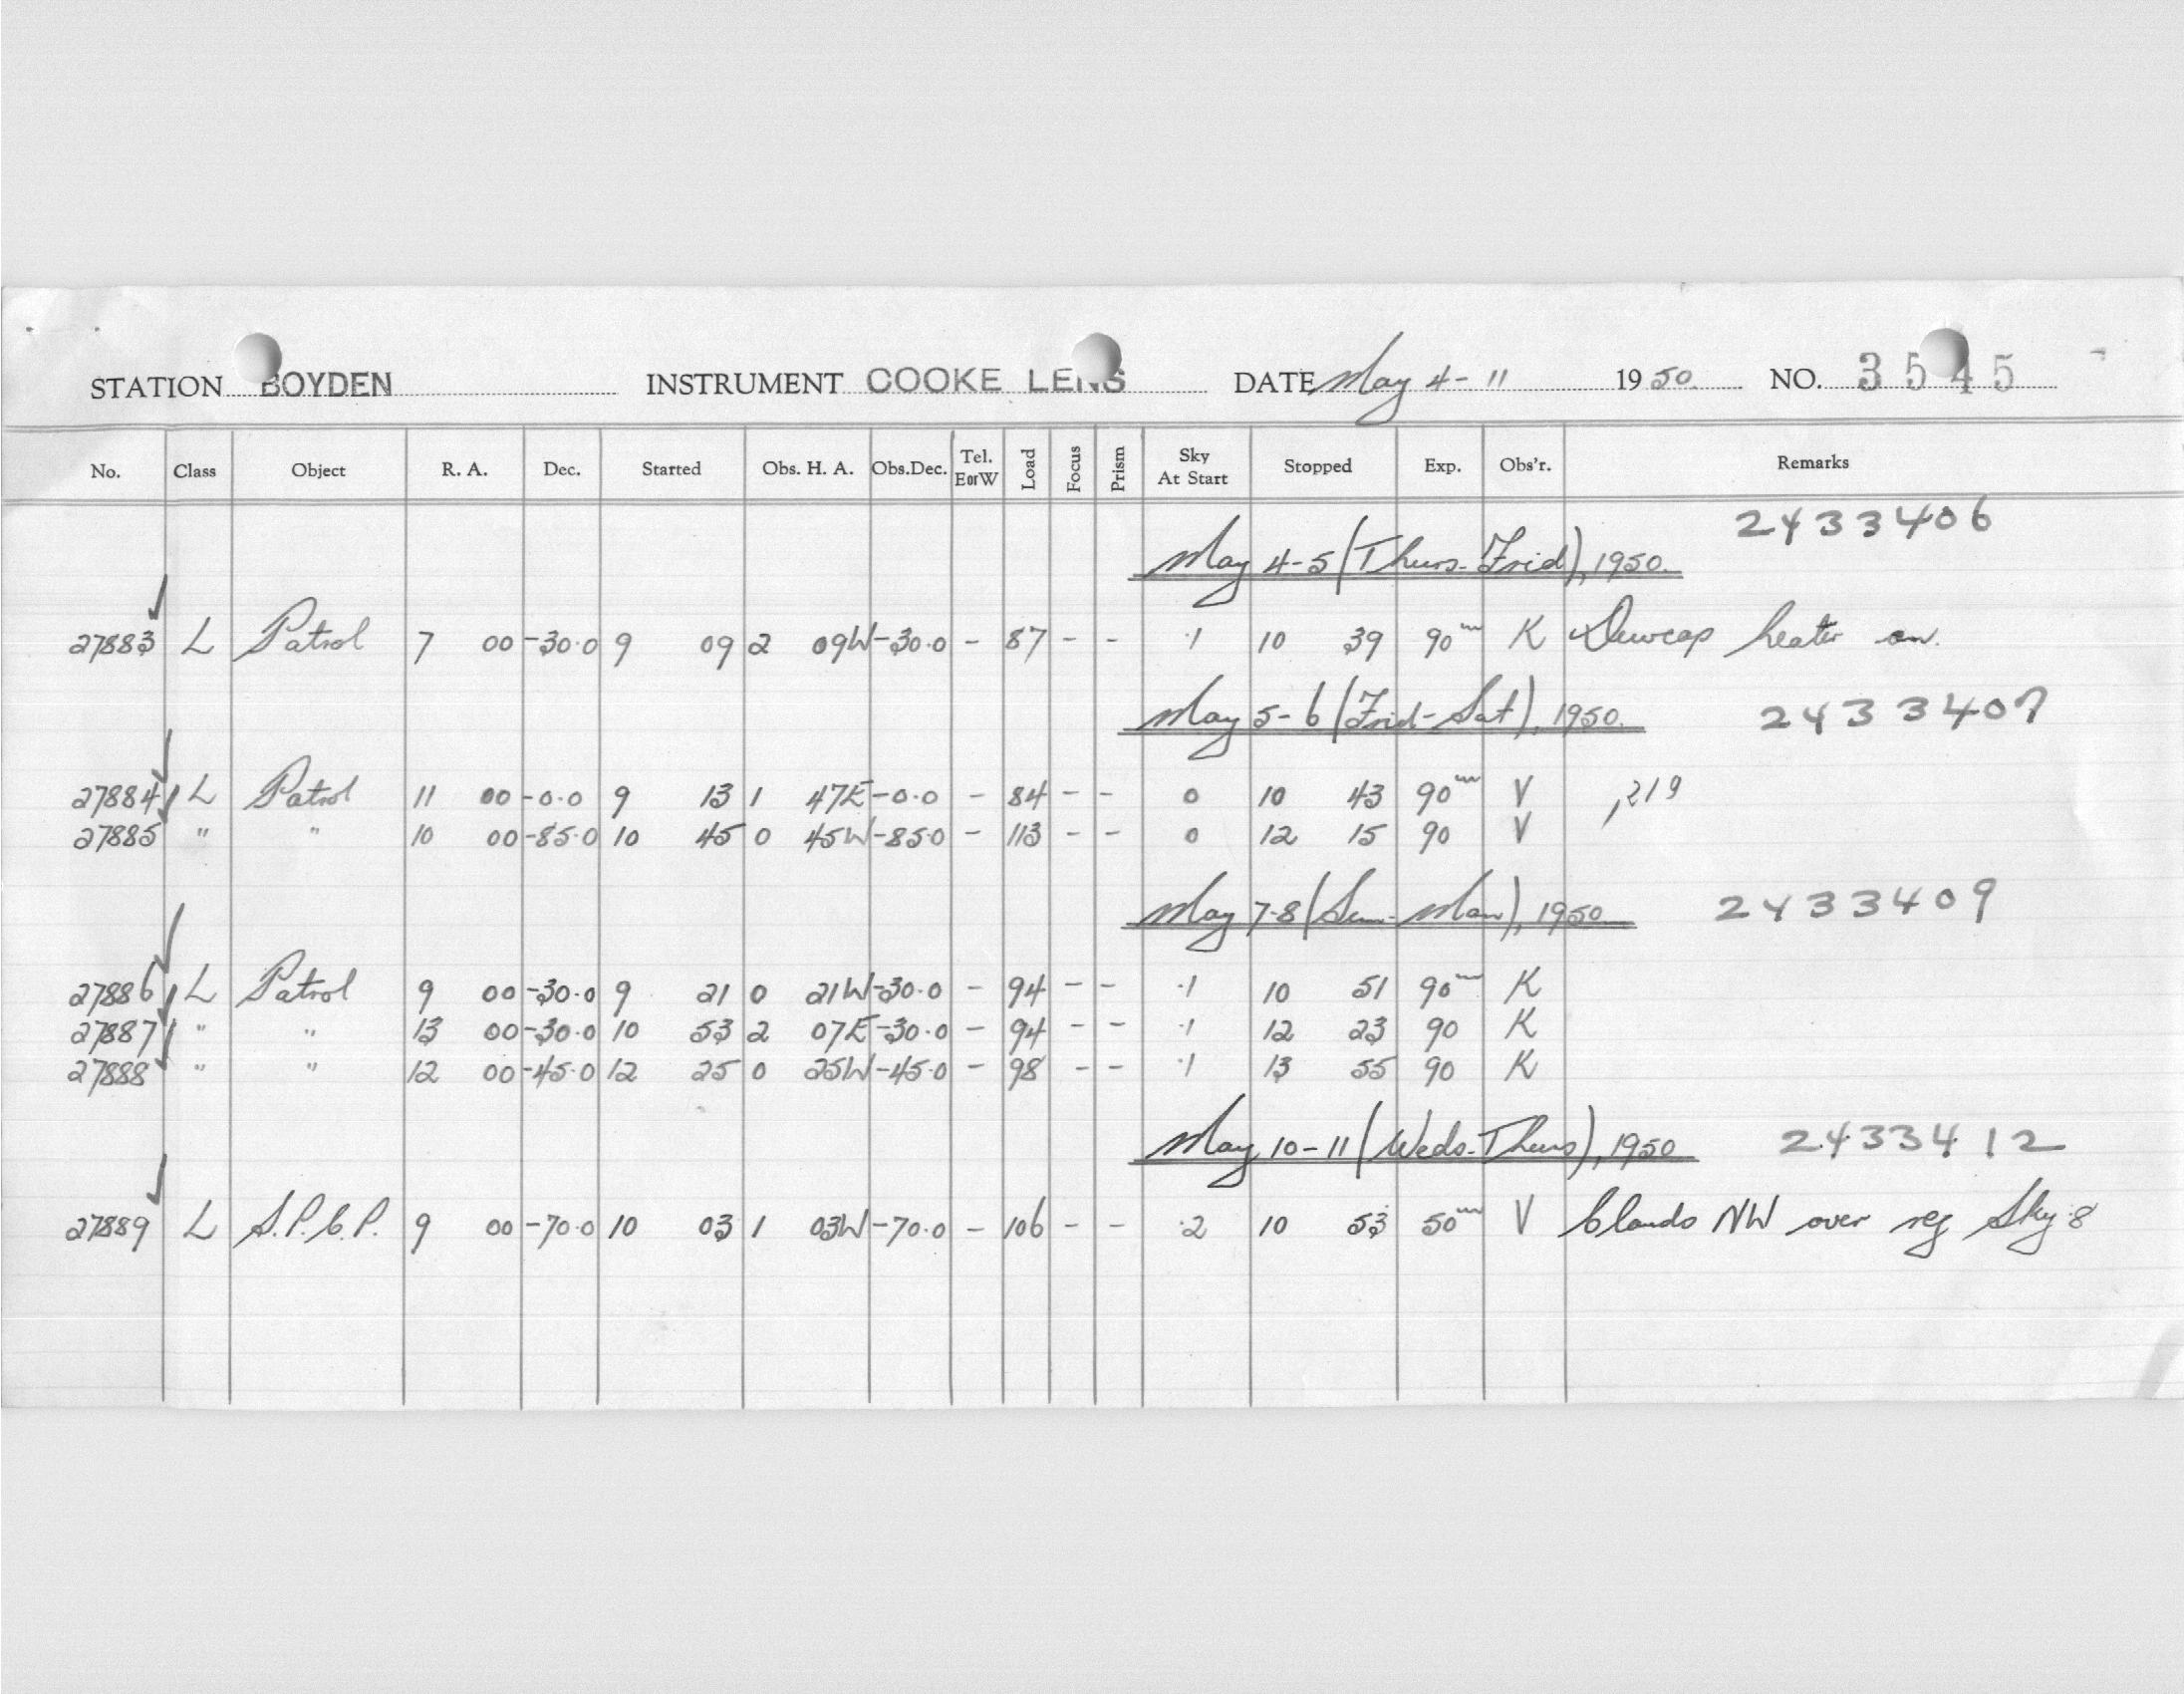 STATION BOYDEN INSTRUMENT COOKE LENS DATE May 4-11 1950. NO. 3545
No. Class Object R. A. Dec. Started Obs. H. A. Obs.Dec. Tel. E or W Load Focus Prism Sky At Start Stopped Exp. Obs'r. Remarks
2433406
May 4-5 (Thurs-Frid), 1950.
27883 L Patrol 7 00 -30.0 9 09 2 09W -30.0 - 87 - - .1 10 39 90m K Dewcap heater on.
May 5-6 (Frid-Sat), 1950. 2433407
27884 L Patrol 11 00 -0.0 9 13 1 47E -0.0 - 84 - - 0 10 43 90m V ,219
27885 " " 10 00 -85.0 10 45 0 45W -85.0 - 113 - - 0 12 15 90 V
May 7-8 (Sun-Mon), 1950 2433409
27886 L Patrol 9 00 -30.0 9 21 0 21W -30.0 - 94 - - .1 10 51 90m K
27887 " " 13 00 -30.0 10 53 2 07E -30.0 - 94 - - .1 12 23 90 K
27888 " " 12 00 -45.0 12 25 0 25W -45.0 - 98 - - .1 13 55 90 K
May 10-11 (Weds-Thurs), 1950 2433412
27889 L S.P.C.P. 9 00 -70.0 10 03 1 03W -70.0 - 106 - - .2 10 53 50m V Clouds NW over reg Sky .8